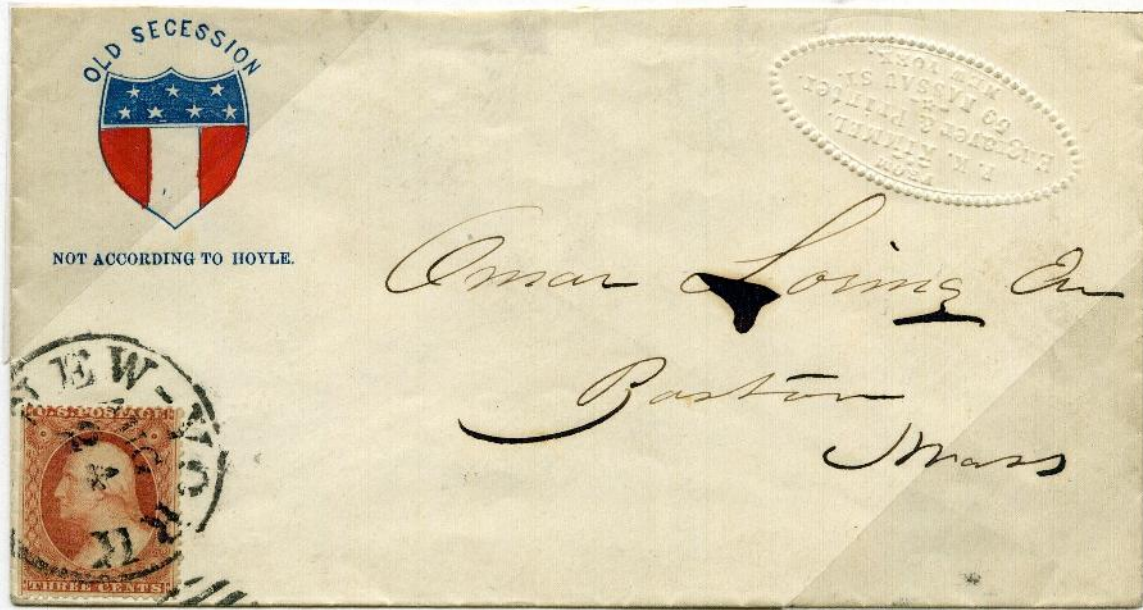 OLD SECESSION
NOT ACCORDING TO HOYLE.
FROM
P. K. KIMMEL.
Engraver & Printer.
59 NASSAU ST.
NEW YORK.
Omar Loring
Boston
Mass
NEW-YORK
AUG
U.S. POSTAGE
THREE CENTS